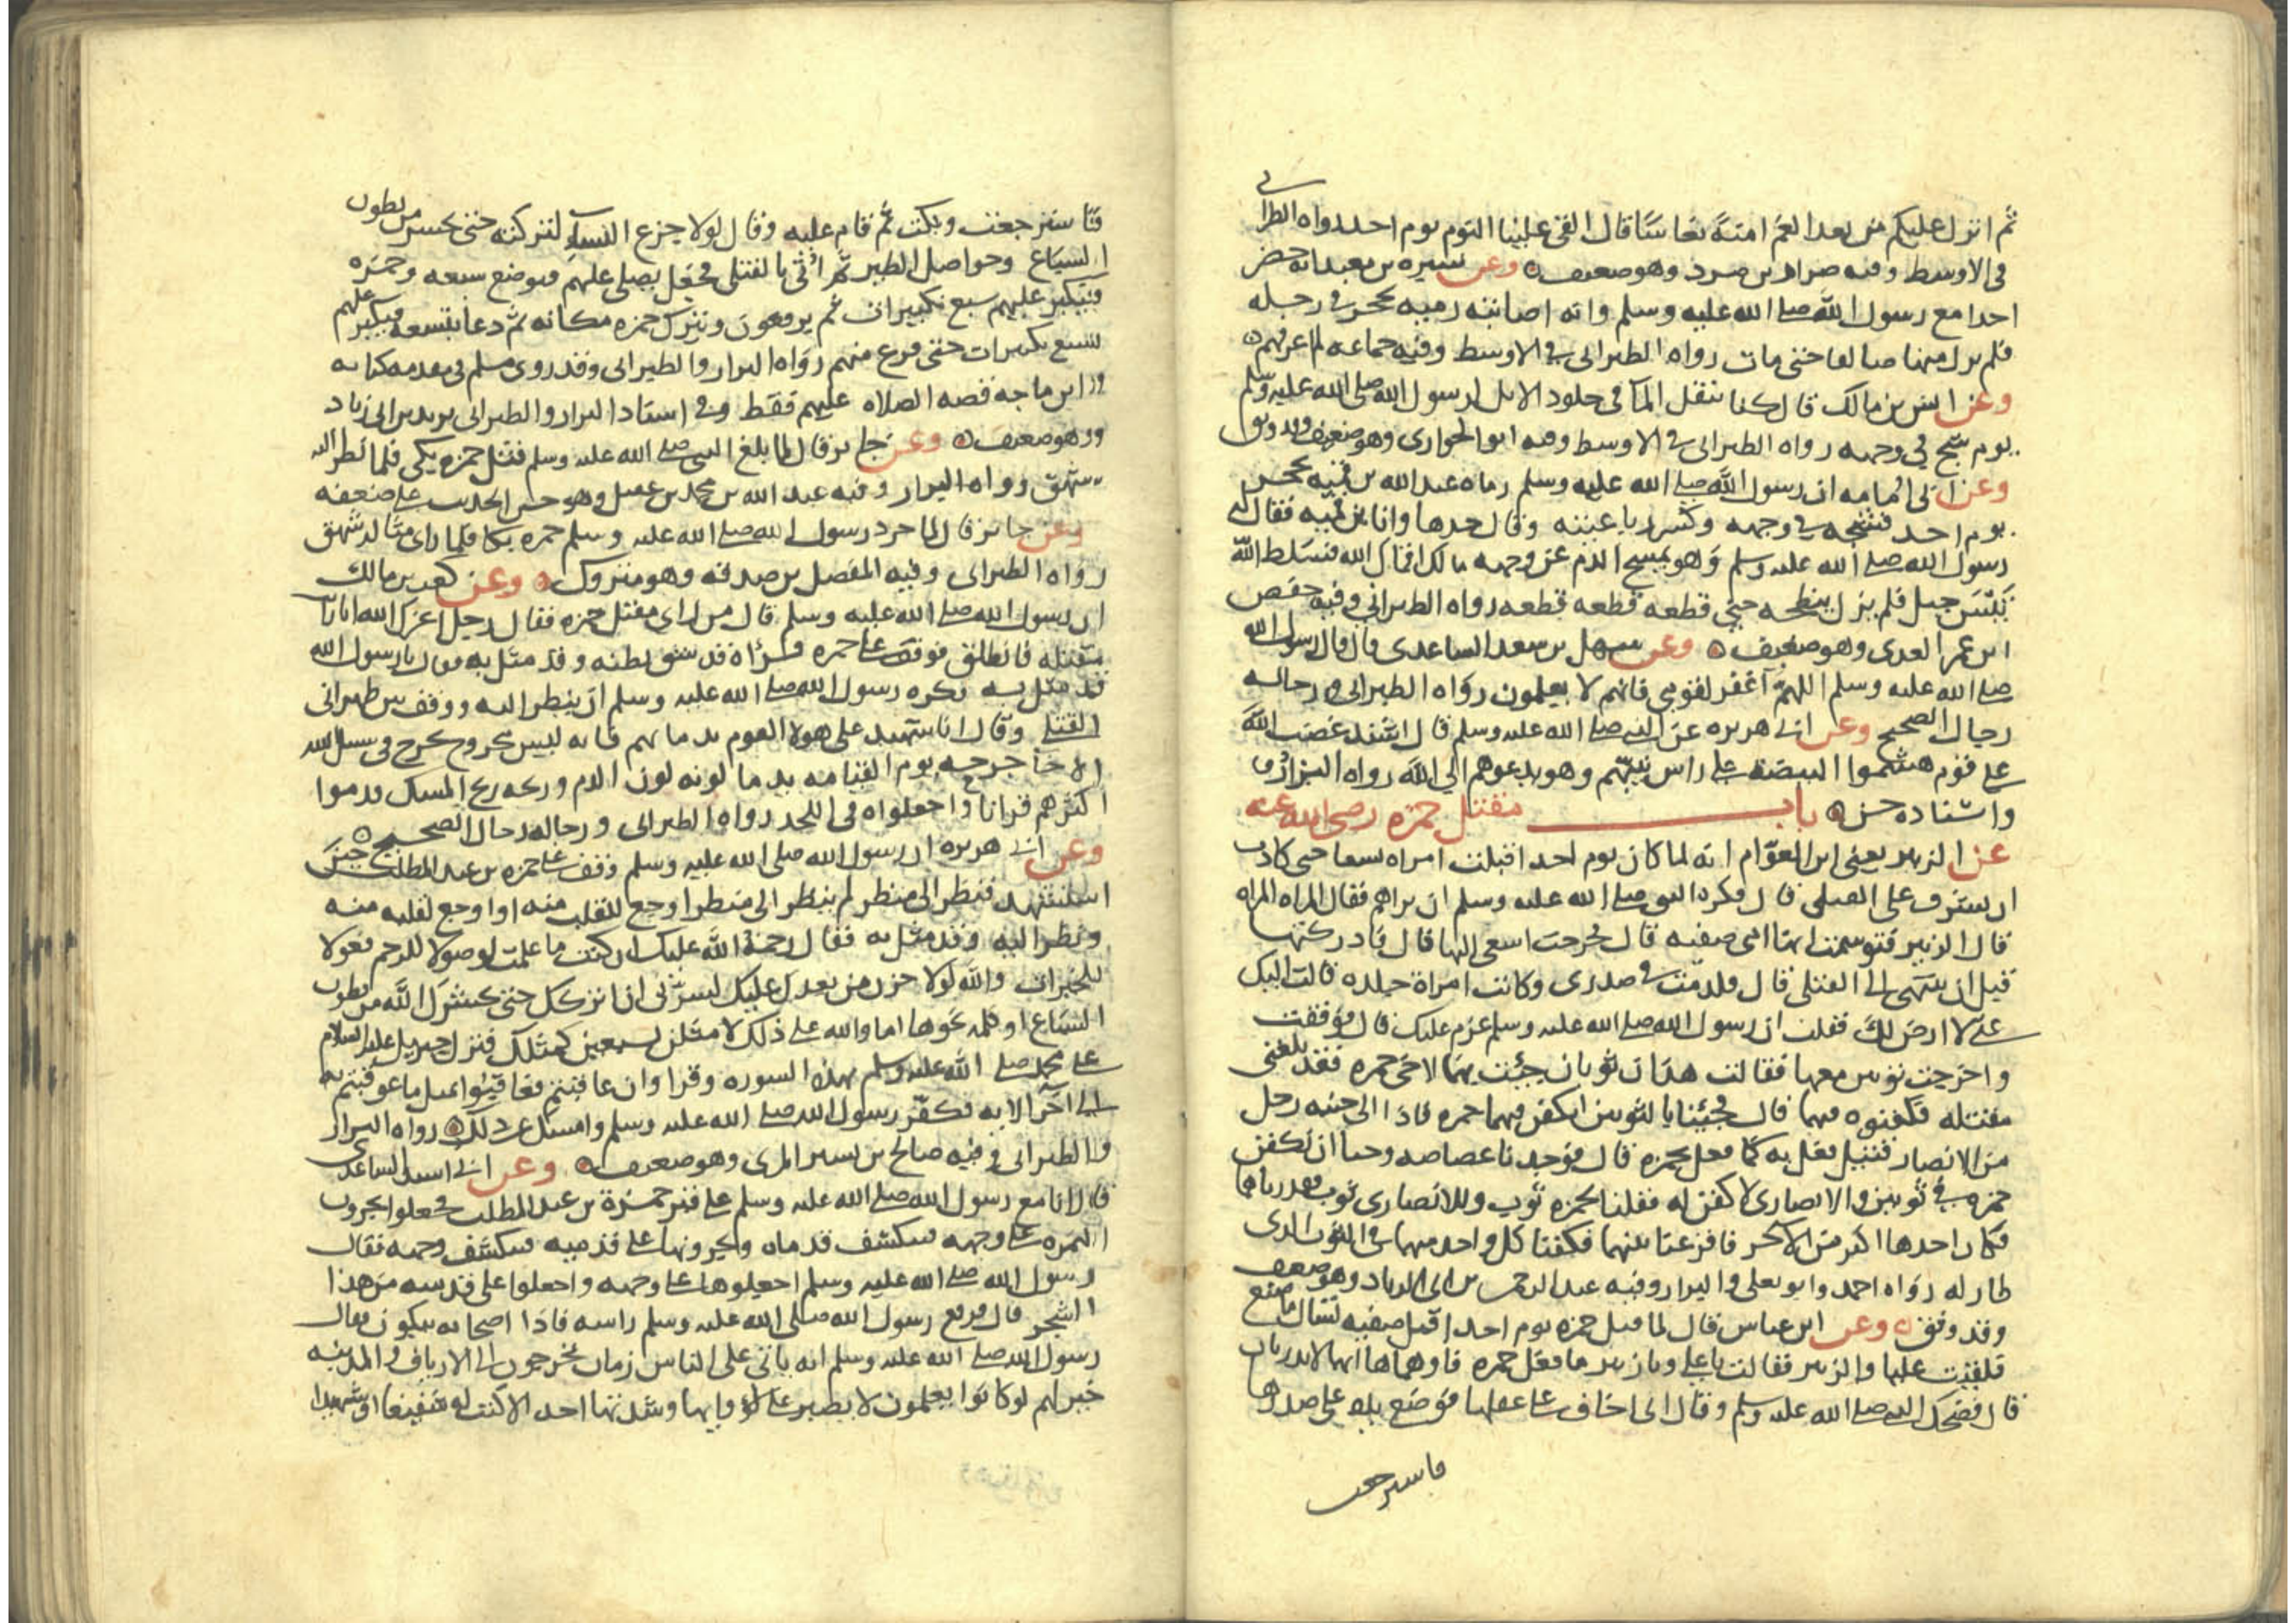 ثم انزل عليكم من بعد الغم امنة نعاسا قال القى علينا النوم يوم احد رواه الطبراني
في الاوسط وفيه ضرار بن صرد وهو ضعيف وعن بن معبد انه حضر
احدا مع رسول الله صلى الله عليه وسلم وانه اصابته رميه بحجر في رجله
فلم يزل منها ضالعا حتى مات رواه الطبراني في الاوسط وفيه جماعه لم اعرفهم
وعن انس بن مالك قال كنا ننقل الما في جلود الابل لرسول الله صلى الله عليه وسلم
يوم شج في وجهه رواه الطبراني في الاوسط وفيه ابو الحواري وهو ضعيف وقد وثق
وعن ابي امامه ان رسول الله صلى الله عليه وسلم رماه عبد الله بن قميه بحجر
يوم احد فشجه في وجهه وكسر رباعيته وقال خدها وانا بن قميه فقال له
رسول الله صلى الله عليه وسلم وهو يمسح الدم عن وجهه مالك اقماك الله فسلط الله
تيس جبل فلم يزل ينطحه حتى قطعه قطعه قطعه رواه الطبراني وفيه حفص
ابن عمر العدي وهو ضعيف وعن سهل بن سعد الساعدي قال قال رسول الله
صلى الله عليه وسلم اللهم اغفر لقومي فانهم لا يعلمون رواه الطبراني ورجاله
رجال الصحيح وعن ابي هريره عن النبي صلى الله عليه وسلم قال اشتد غضب الله
على قوم هشموا البيضه على راس نبيهم وهو يدعوهم الى الله رواه البزار
واسناده حسن باب مقتل حمزه رضي الله عنه
عن الزبير يعني ابن العوام انه لما كان يوم احد اقبلت امراه تسعا حتى كادت
ان تشرف على القتلى قال فكره النبي صلى الله عليه وسلم ان تراهم فقال المراه المراه
قال الزبير فتوسمت انها امي صفيه قال فخرجت اسعى اليها قال فادركتها
قبل ان تنتهي الى القتلى قال فلدمت في صدري وكانت امراة جلده قالت اليك
عني لا ارض لك فقلت ان رسول الله صلى الله عليه وسلم عزم عليك قال فوقفت
واخرجت ثوبين معها فقالت هدان ثوبان جيئت بهما لاخي حمزه فقد بلغني
مقتله فكفنوه فيهما قال فجئنا بالثوبين لنكفن فيهما حمزه فاذا الى جنبه رجل
من الانصار قتيل فعل به كما فعل بحمزه قال فوجدنا غضاضه وحيا ان نكفن
حمزه في ثوبين والانصاري لا كفن له فقلنا لحمزه ثوب وللانصاري ثوب فقدرناهما
فكان احدهما اكبر من الاخر فاقرعنا بينهما فكفنا كل واحد منهما في الثوب الدي
طار له رواه احمد وابو يعلى والبزار وفيه عبد الرحمن بن ابي الزناد وهو ضعيف
وقد وثق وعن ابن عباس قال لما قتل حمزه يوم احد اقبل صفيه تسال ما صنع
فلقيت عليا والزبير فقالت يا علي ويا زبير ما فعل حمزه فاوهماها انهما لا يدريان
قال فضحك النبي صلى الله عليه وسلم وقال اني اخاف على عقلها فوضع يده على صدرها
فاسترجعت
فاسترجعت وبكت ثم قام عليه وقال لولا جزع النساء لتركته حتى يحشر من بطون
السباع وحواصل الطير ثم اتي بالقتلى فجعل يصلي عليهم فيوضع سبعه وحمزه
فيكبر عليهم سبع تكبيرات ثم يرفعون ويترك حمزه مكانه ثم دعا بتسعه فيكبر عليهم
سبع تكبيرات حتى فرغ منهم رواه البزار والطبراني وقد روى مسلم في مقدمه كتابه
وابن ماجه قصه الصلاه عليهم فقط وفي اسناد البزار والطبراني يزيد بن ابي زياد
وهو ضعيف وعن جابر قال لما بلغ النبي صلى الله عليه وسلم قتل حمزه بكى فلما نظر اليه
شهق رواه البزار وفيه عبد الله بن محمد بن عقيل وهو حسن الحديث على ضعفه
وعن جابر قال لما جرد رسول الله صلى الله عليه وسلم حمزه بكا فلما راى مثاله شهق
رواه الطبراني وفيه المفضل بن صدقه وهو متروك وعن كعب بن مالك
ان رسول الله صلى الله عليه وسلم قال من راى مقتل حمزه فقال رجل اعزك الله انا رايت
مقتله فانطلق فوقف على حمزه فراه قد شق بطنه وقد مثل به فقال يا رسول الله
قد مثل به فكره رسول الله صلى الله عليه وسلم ان ينظر اليه ووقف بين ظهراني
القتلى وقال انا شهيد على هولا القوم بدمائهم فانه ليس مجروح يجرح في سبيل الله
الا جا جرحه يوم القيامه يدما لونه لون الدم وريحه ريح المسك قدموا
اكثرهم قرانا واجعلواه في اللحد رواه الطبراني ورجاله رجال الصحيح
وعن ابي هريره ان رسول الله صلى الله عليه وسلم وقف على حمزه بن عبد المطلب حين
استشهد فنظر الى منظر لم ينظر الى منظر اوجع للقلب منه او اوجع لقلبه منه
ونظر اليه وقد مثل به فقال رحمة الله عليك ان كنت ما علمت لوصولا للرحم فعولا
للخيرات والله لولا حزن من بعدك عليك لسرني ان اتركك حتى يحشرك الله من بطون
السباع او كلمه نحوها اما والله على ذلك لامثلن بسبعين كمثلك فنزل جبريل عليه السلام
على محمد صلى الله عليه وسلم بهذه السوره وقرا وان عاقبتم فعاقبوا بمثل ما عوقبتم به
الى آخر الايه فكفر رسول الله صلى الله عليه وسلم وامسك عن ذلك رواه البزار
والطبراني وفيه صالح بن بشير المري وهو ضعيف وعن ابي اسيد الساعدي
قال انا مع رسول الله صلى الله عليه وسلم على قبر حمزة بن عبد المطلب فجعلوا يجرون
النمره على وجهه فتكشف قدماه ويجرونها على قدميه فتكشف وجهه فقال
رسول الله صلى الله عليه وسلم اجعلوها على وجهه واجعلوا على قدميه من هذا
الشجر قال فرفع رسول الله صلى الله عليه وسلم راسه فاذا اصحابه يبكون فقال
رسول الله صلى الله عليه وسلم انه ياتي على الناس زمان يخرجون الى الارياف والمدينه
خير لهم لو كانوا يعلمون لا يصبر على لاوايها وشدتها احد الا كنت له شفيعا او شهيدا